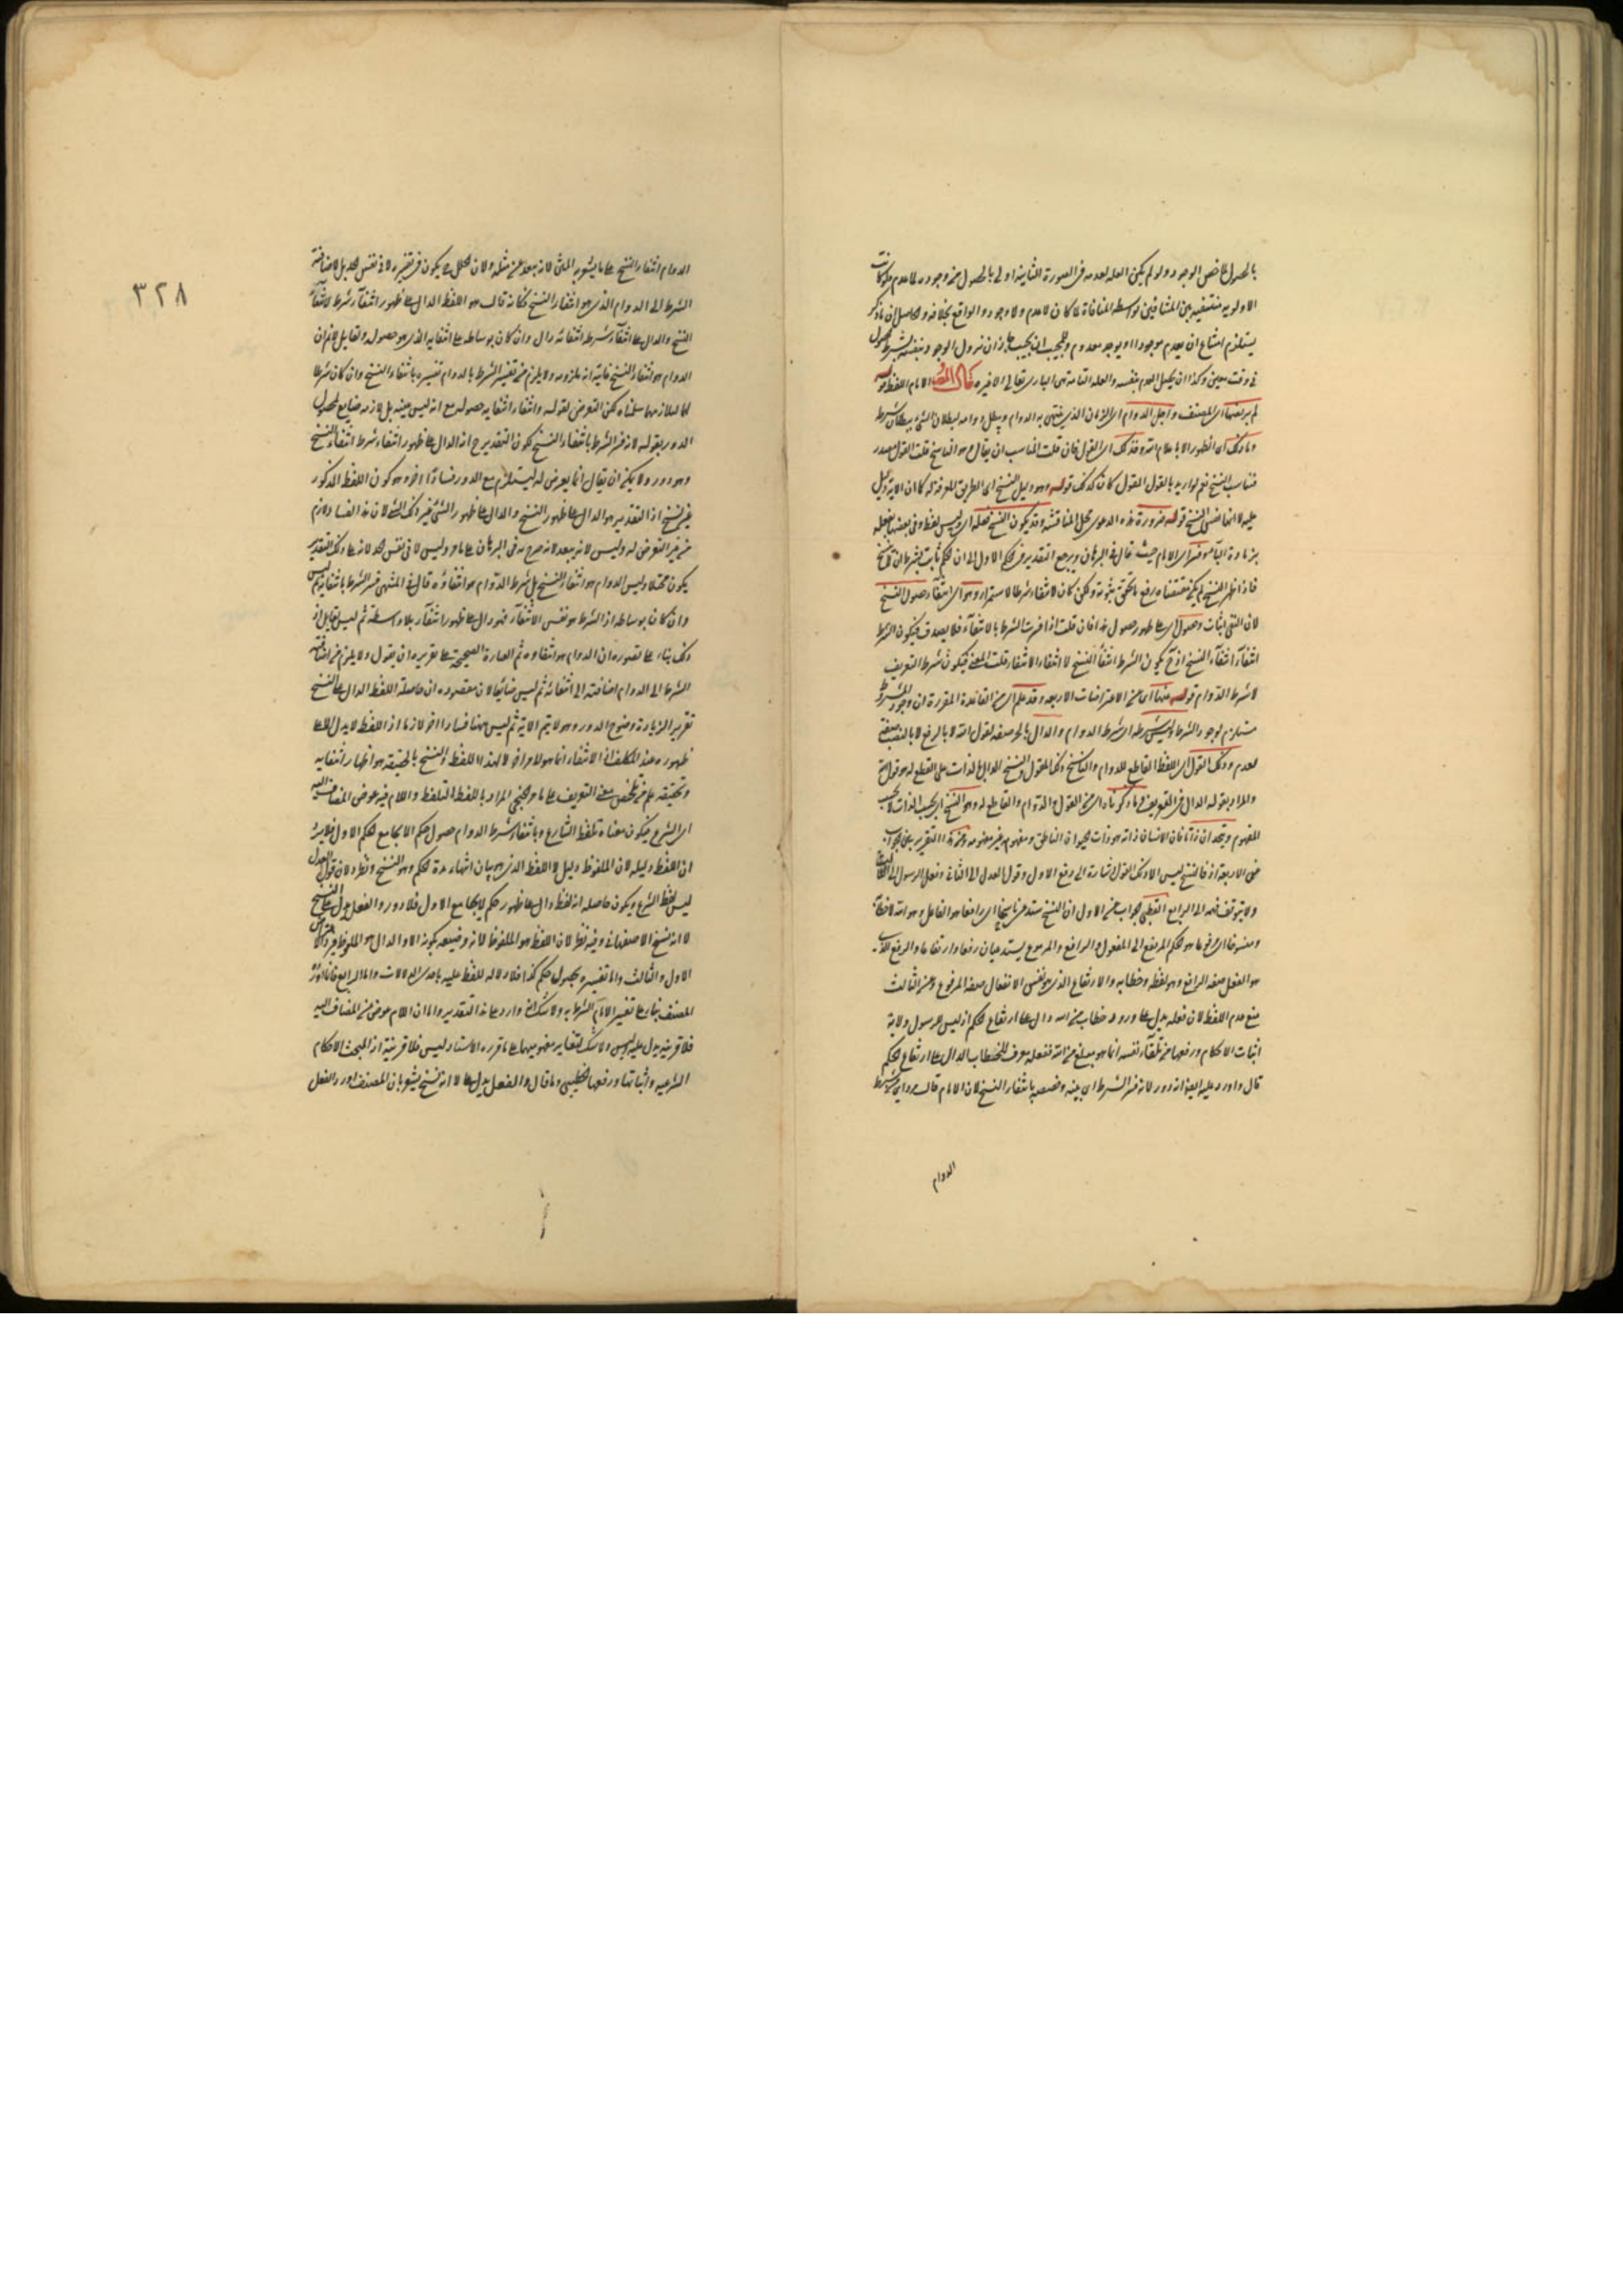 بالحصول عاض الوجود ولو لم يكن العله لعدمه فى الصورة الثانية اولى بالحصول منه وجوده للعدم ولو كانت
الاولويه منتفيه بين المتنافيين بواسطه المنافاة لما كان لا عدم ولا وجود والواقع بخلافه والحاصل ان ما ذكر
يستلزم امتناع ان يعدم موجودا او يوجد معدوم
فى وقت معين وكذا ان يكمل العدم بنفسه والعله التامه هى البارى تعالى الاخيره قال المص الامام اللفظ
لم يرتضها اى المصنف واجل الدوام اى الزمان الذى ينتهى به الدوام ويبطل دوامه لبطلان الشئ ببطلان شرطه
وما ذلك اى الظهور الا باعلام الله وقد ذلك اى القول فان قلت المناسب ان يقال هو الناسخ قلت القول مصدر
فناسب النسخ نعم لو اريد بالقول المقول كان كذلك قوله وهو دليل النسخ اى الطريق المعرفة له كما ان الاية دليل
عليه لا انها نفس النسخ قوله ضرورة هذه الدعوى محل المناقشه وقد يكون النسخ فعله اى وليس لفظ وفى بعضها بفعله
بزيادة الباء وفسر اى الامام حيث قال فى البرهان ويرجع التقدير فى الحكم الاول الى ان الحكم ثابت بشرط ان لا ينسخ
فاذا ظهر النسخ لم يكن مقتضاه رفع ما تحقق ثبوته ولكن كان الانتفاء شرطا لاستمراره وهو اى انتفاء حصول النسخ
لان النفى اثبات وحصول اى على ظهور حصول هذا فان قلت اذا فسرت الشرط بالانتفاء فلا يصدق فيكون الشرط
انتفاء انتفاء النسخ اذ ح يكون الشرط انتفاء النسخ لا انتفاء الانتفاء قلت المعنى فيكون شرط التعريف
لا شرط الدوام قوله منها اى من الاعتراضات الاربعه وقد علم اى من القاعدة المقررة ان وجود المشروط
مستلزم لوجود الشرط وليس شرطه اى شرط الدوام والدال بالجر صفه لقول الله لا بالرفع لا بالنصب صفة
لعدم وذلك القول اى اللفظ القاطع للدوام والناسخ وكذا المقول والنسخ الدال بالذات على القطع له هو قول الله
والمراد بقوله الدال فى التعريف وما ذكرناه اى من القول والدوام والقاطع له وهو النسخ اى بحسب الذات لا بحسب
المفهوم ويتحد ان ذاتا فان الانسان ذاته هو ذات الحيوان الناطق ومفهومه غير مفهومه ومن هذا التقرير يتبين الجواب
عن الاربعة اذ فالنسخ ليس الا ذلك القول اشارة الى دفع الاول وقول العدل الى الثانى وفعل الرسول الى الثالث
ولا يتوقف فهمه الى الرابع القطبى جواب عن الاول ان النسخ يستدعى ناسخا اى رافعا هو الفاعل وهو الله تعالى
ومنسوخا اى مرفوعا هو الحكم المرتفع اى المفعول والرافع والمرفوع يستدعيان رفعا وارتفاعا والرفع الذى
هو الفعل صفه الرافع وهو لفظه وخطابه والارتفاع الذى هو نفس الانفعال صفه المرفوع وعن الثالث
منع عدم اللفظ لان فعله يدل على ورود خطاب من الله دال على ارتفاع الحكم اذ ليس للرسول ولاية
اثبات الاحكام ورفعها من تلقاء نفسه انما هو مبلغ من الله ففعله معرف للخطاب الدال على ارتفاع الحكم
قال واورد عليه ايضا انه دور لانه فسر الشرط اى بينه وفسره بانتفاء النسخ لان الامام قال
الدوام
٣٢٨
الدوام انتفاء النسخ على ما يشعر به المتن لانه بعد عن مثله ولان الخلل ح يكون فى تقريره لا فى نفس الحد بل لاضافة
الشرط الى الدوام الذى هو انتفاء النسخ فكانه قال هو اللفظ الدال على ظهور انتفاء شرط لانتفاء
النسخ والدال على انتفاء شرط انتفائه دال وان كان بوساطه على انتفائه الذى هو حصوله ولقايل منع ان
الدوام هو انتفاء النسخ غايته انه ملزومه ولا يلزم من تفسير الشرط بالدوام تفسيره بانتفاء النسخ وان كان شرطا
لهما لتلازمهما سلمناه لكن التعرض لقوله وانتفاء انتفائه حصوله مع انه ليس عينه بل لازمه ضايع لحصول
الدور بقوله لانه فسر الشرط بانتفاء النسخ لكون التقدير ح انه الدال على ظهور انتفاء شرط انتفاء النسخ
وهو دور ولا يمكن ان يقال انما يعرض له ليستلزم مع الدور فسادا اخر وهو كون اللفظ المذكور
غير النسخ اذ التقدير هو الدال على ظهور النسخ والدال على ظهور الشئ غير ذلك الشئ لان هذا الفساد لازم
من غير التعرض له وليس لانه بعد لانه صرح به فى البرهان على ما مر وليس لا فى نفس الحد لانه على ذلك التقدير
يكون مختلا وليس الدوام هو انتفاء النسخ بل شرط الدوام هو انتفاؤه قال فى المنتهى فسر الشرط بانتفائه ثم ليس
وان كان بوساطه اذ الشرط هو نفس الانتفاء فهو دال على ظهور انتفاء بلا واسطة ثم ليس لقايل اذ
ذلك بناء على تصوره ان الدوام هو انتفاؤه ثم العبارة الصحيحة على تقريره ان يقول ولا يلزم من اضافة
الشرط الى الدوام اضافته الى انتفائه ثم ليس ضايعا لان مقصوده ان حاصله اللفظ الدال على النسخ
تقرير الزيادة وضوح الدور وهو لا يتم الا به ثم ليس ههنا فسادا اخر لازما اذ اللفظ لا يدل الا على
ظهوره عند المكلف اذ الانتفاء انما هو لامر اخر لا لهذا اللفظ والنسخ بالحقيقه هو اظهار انتفائه
وتحقيقه علم من تلخص معنى التعريف على ما مر الخنجى المراد باللفظ التلفظ واللام فيه عوض المضاف اليه
اى الشرع فيكون معناه تلفظ الشارع وبانتفاء شرط الدوام حصول حكم لا يجامع الحكم الاول فلا يرد
ان اللفظ دليله لان الملفوظ دليل لا اللفظ الذى هو بيان انتهاء مدة الحكم وهو النسخ ونظر لان قول العدل
ليس لفظ الشرع ويكون حاصله انه لفظ دال على ظهور حكم لا يجامع الاول فلا دور والفعل يدل على النسخ
لا انه نسخ الاصفهانى وفيه نظر لان اللفظ هو الملفوظ لانه وصفه بكونه الا والدال هو الملفوظ
الاول والثالث واما تفسيره بحصول حكم كذا فلا دلالة للفظ عليه باحدى الدلالات واما الرابع فانما اورده
المصنف بناء على تفسير الامام الشرط به ولا شك انه وارد على هذا التقدير واما ان اللام عوض عن المضاف اليه
فلا قرينه يدل عليه وليس ولا شك لتغاير مفهوميهما على ما قرره الاستاد ليس فلا قرينة اذ المبحث الاحكام
الشرعيه واثباتها ورفعها الخطيبى وما قال والفعل يدل على لا انه نسخ يشعر بان المصنف اورد الفعل